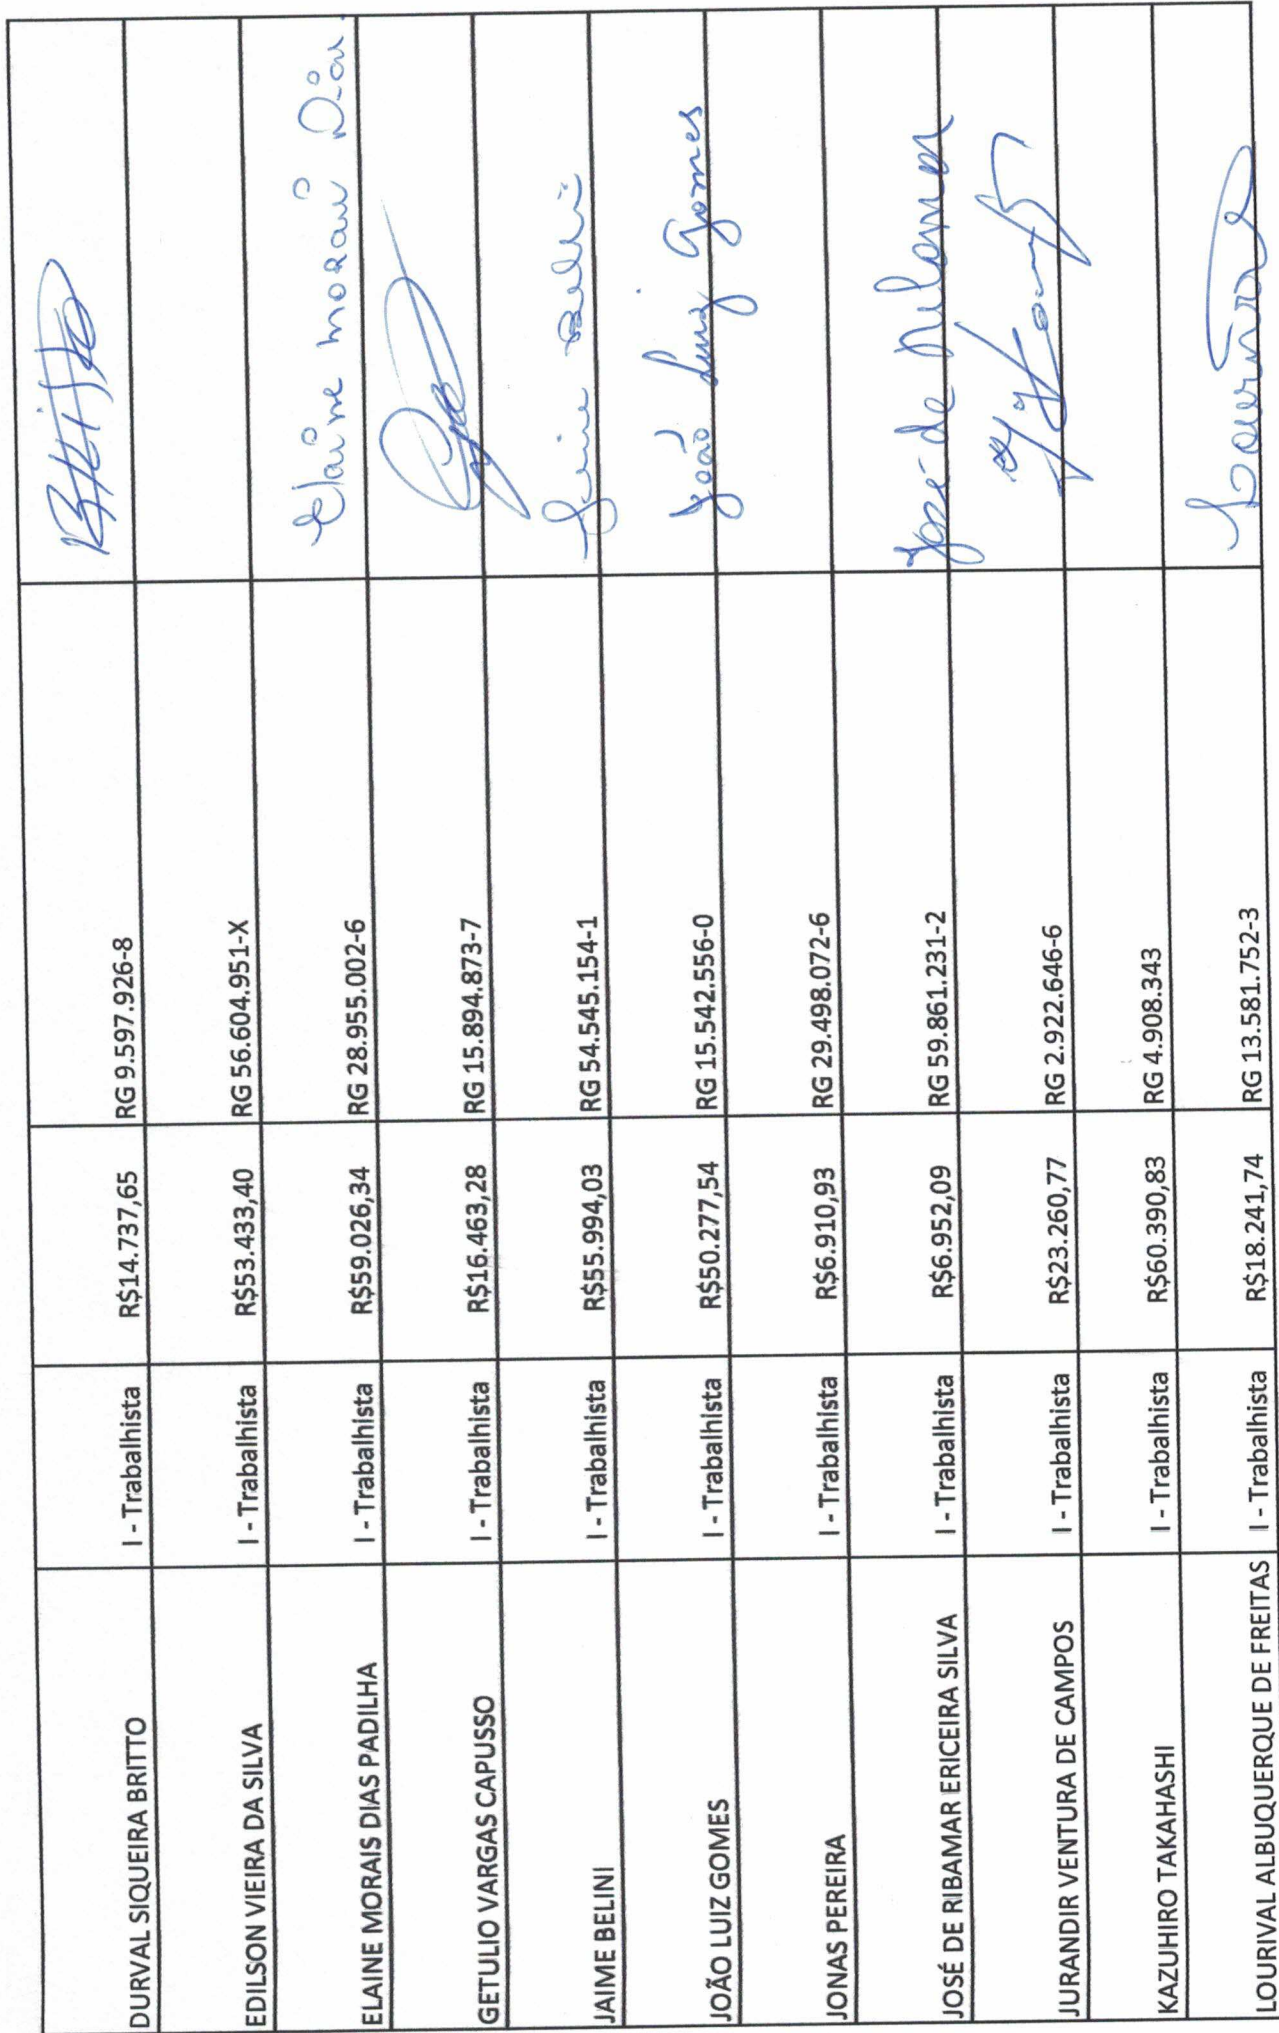 DURVAL SIQUEIRA BRITTO I - Trabalhista R$14.737,65 RG 9.597.926-8 Britto
EDILSON VIEIRA DA SILVA I - Trabalhista R$53.433,40 RG 56.604.951-X
ELAINE MORAIS DIAS PADILHA I - Trabalhista R$59.026,34 RG 28.955.002-6 Elaine Morais Dias
GETULIO VARGAS CAPUSSO I - Trabalhista R$16.463,28 RG 15.894.873-7
JAIME BELINI I - Trabalhista R$55.994,03 RG 54.545.154-1
JOÃO LUIZ GOMES I - Trabalhista R$50.277,54 RG 15.542.556-0 João Luiz Gomes
JONAS PEREIRA I - Trabalhista R$6.910,93 RG 29.498.072-6
JOSÉ DE RIBAMAR ERICEIRA SILVA I - Trabalhista R$6.952,09 RG 59.861.231-2 José de Ribamar
JURANDIR VENTURA DE CAMPOS I - Trabalhista R$23.260,77 RG 2.922.646-6
KAZUHIRO TAKAHASHI I - Trabalhista R$60.390,83 RG 4.908.343
LOURIVAL ALBUQUERQUE DE FREITAS I - Trabalhista R$18.241,74 RG 13.581.752-3